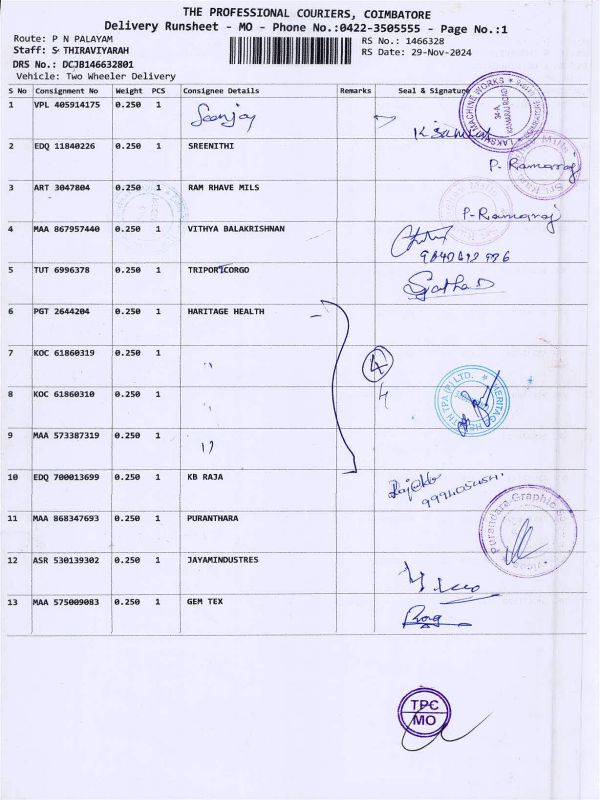 THE PROFESSIONAL COURIERS, COIMBATORE
Delivery Runsheet - MO - Phone No.:0422-3505555 - Page No.:1
Route: P N PALAYAM
RS No.: 1466328
Staff: S THIRAVIYARAH
RS Date: 29-Nov-2024
DRS No.: DCJB146632801
Vehicle: Two Wheeler Delivery
S No Consignment No Weight PCS Consignee Details Remarks Seal & Signature
1 VPL 405914175 0.250 1
2 EDQ 11840226 0.250 1 SREENITHI P. Ramaraj
3 ART 3047804 0.250 1 RAM RHAVE MILS P-Ramaraj
4 MAA 867957440 0.250 1 VITHYA BALAKRISHNAN
5 TUT 6996378 0.250 1 TRIPORTCORGO
6 PGT 2644204 0.250 1 HARITAGE HEALTH
7 KOC 61860319 0.250 1 "
4
8 KOC 61860310 0.250 1 "
4
HERITAGE HEALTH TPA (P) LTD.
9 MAA 573387319 0.250 1 "
10 EDQ 700013699 0.250 1 KB RAJA
11 MAA 868347693 0.250 1 PURANTHARA
Purandara Graphic
12 ASR 530139302 0.250 1 JAYAMINDUSTRES
13 MAA 575009083 0.250 1 GEM TEX
TPC
MO